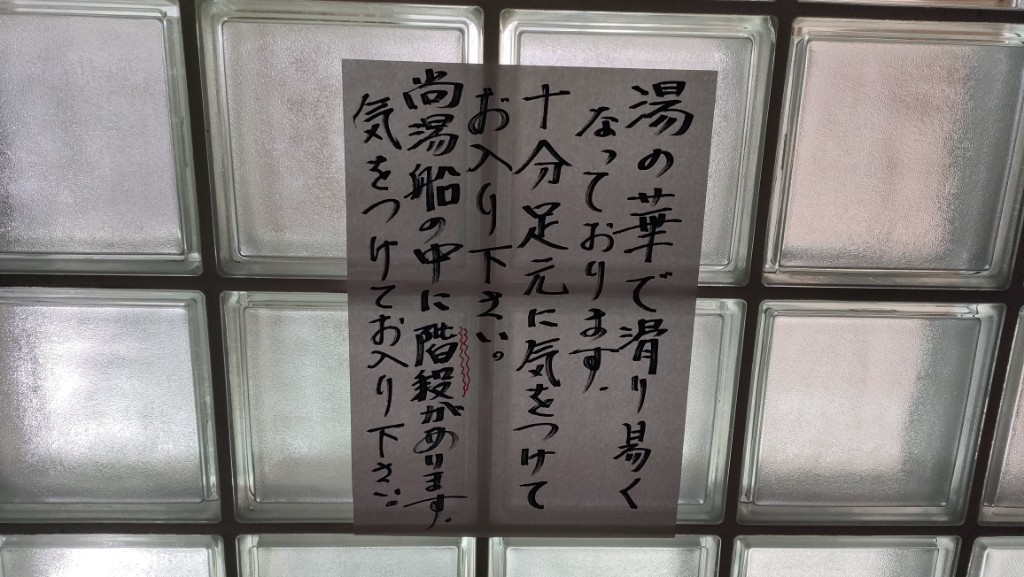 湯の華で滑り易く
なっております.
十分足元に気をつけて
お入り下さい。
尚湯船の中に階段があります.
気をつけてお入り下さい。